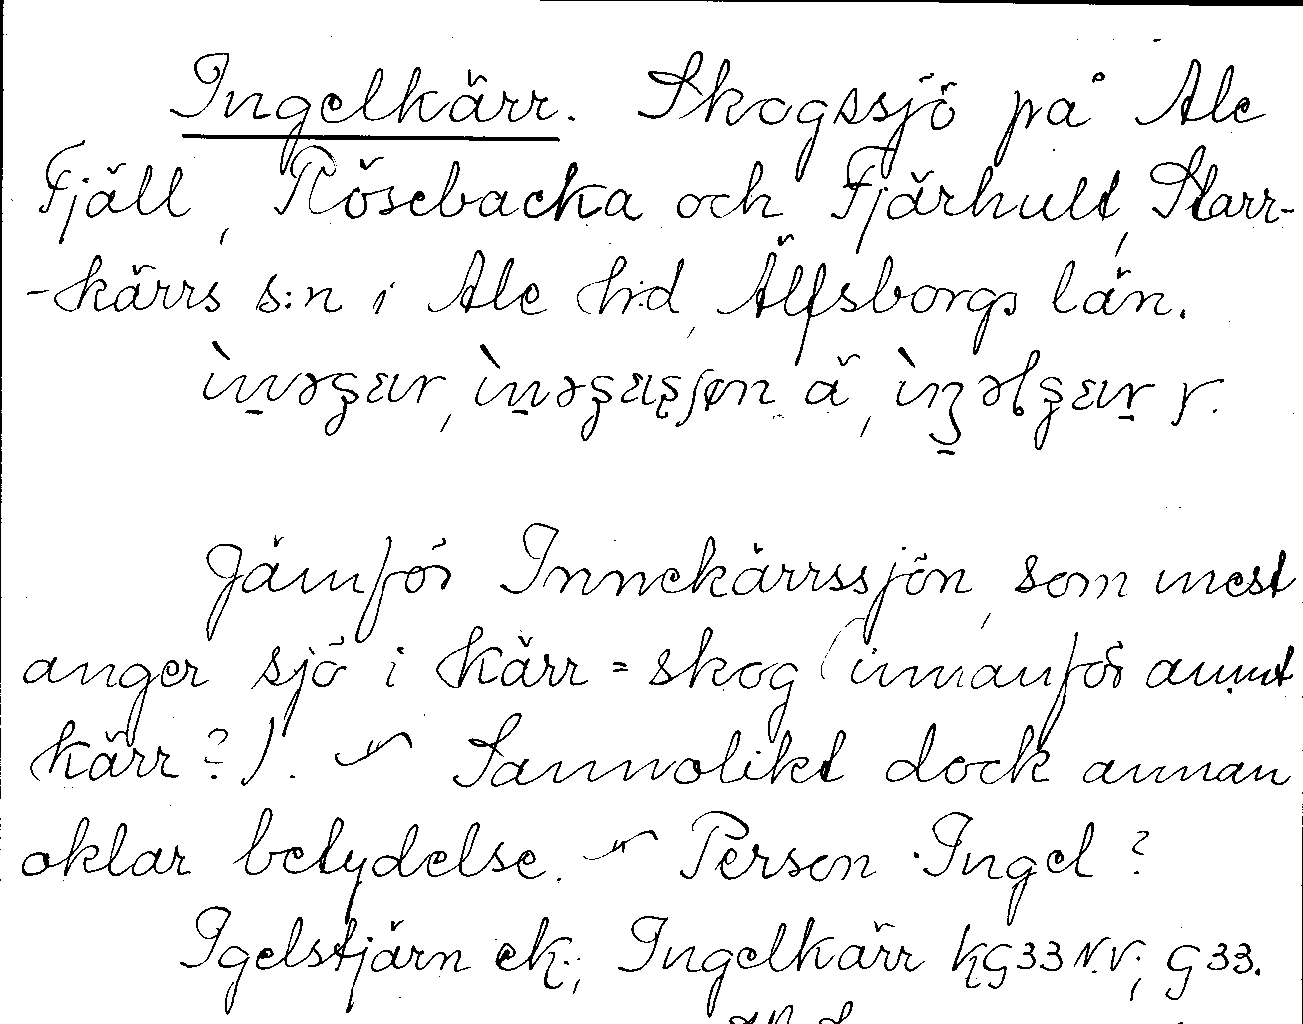 Ingelkärr. Skogssjö på Ale
Fjäll, Rösebacka och Fjärhult, Starr-
-kärrs s:n i Ale hd, Älfsborgs län.
Jämför Innekärrssjön, som mest
anger sjö i kärr = skog (innanför annat
kärr?). Sannolikt dock annan
oklar betydelse. Person Ingel?
Igelstjärn ek.; Ingelkärr KG33 N.V.; G33.